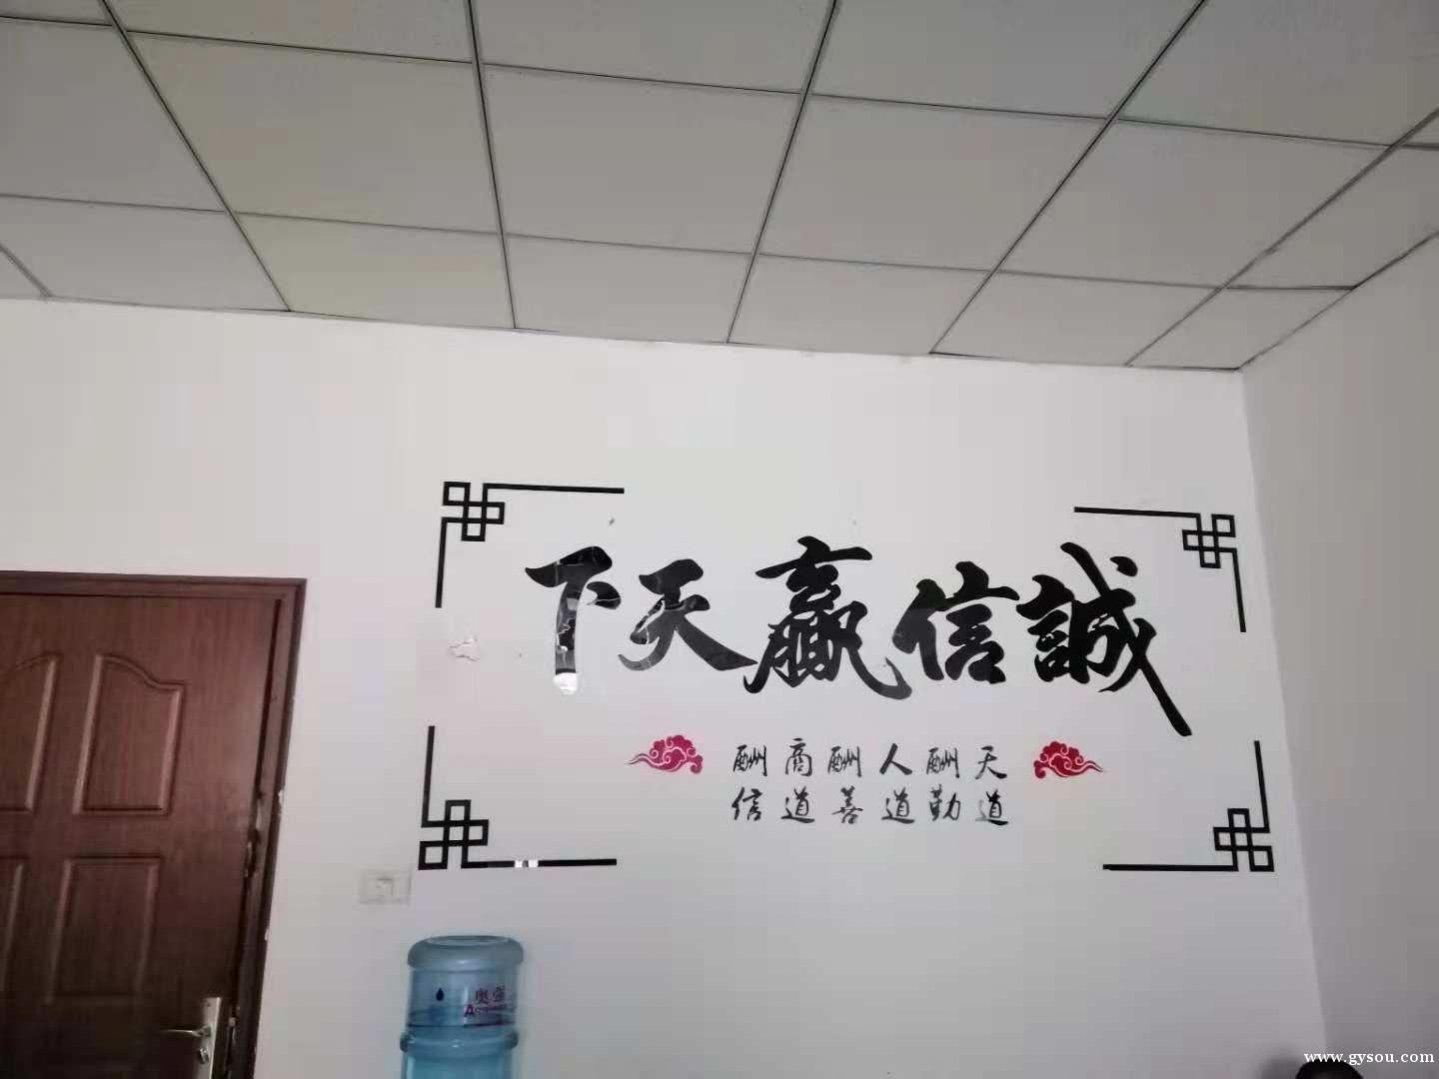 誠信贏天下
天道
酬勤
人道
酬善
商道
酬信
www.gysou.com